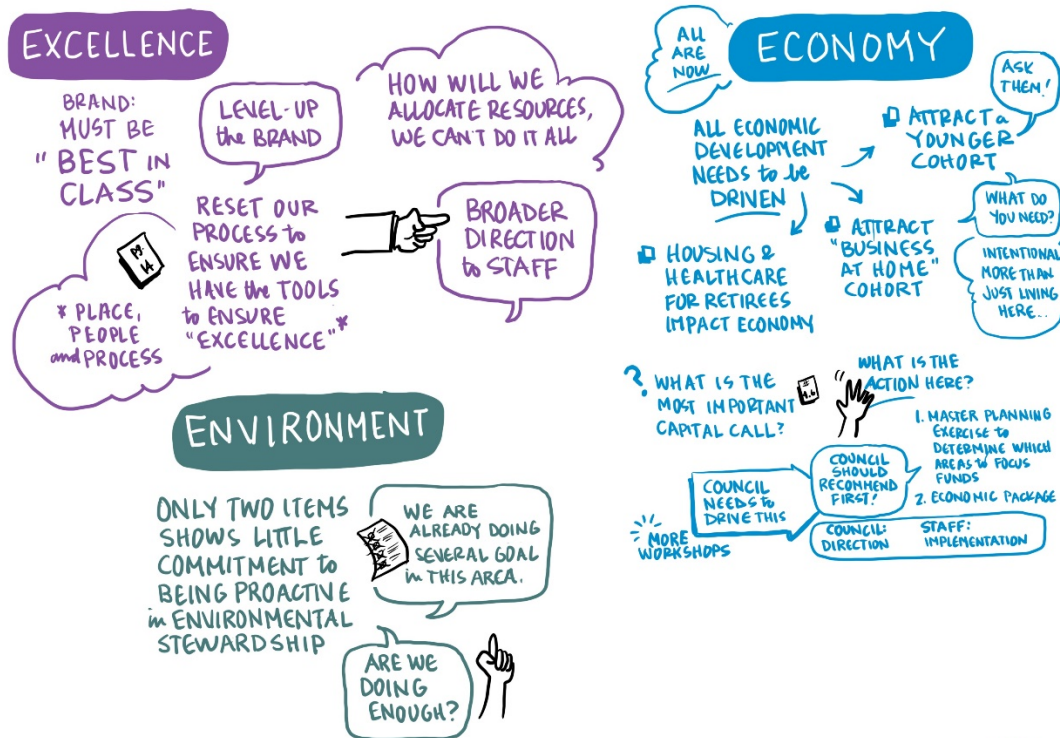 EXCELLENCE
BRAND:
MUST BE
"BEST IN
CLASS"
LEVEL-UP
the BRAND
HOW WILL WE
ALLOCATE RESOURCES,
WE CAN'T DO IT ALL
PG.
14
* PLACE,
PEOPLE
and PROCESS
RESET OUR
PROCESS to
ENSURE WE
HAVE the TOOLS
to ENSURE
"EXCELLENCE"*
BROADER
DIRECTION
to STAFF
ENVIRONMENT
ONLY TWO ITEMS
SHOWS LITTLE
COMMITMENT to
BEING PROACTIVE
in ENVIRONMENTAL
STEWARDSHIP
WE ARE
ALREADY DOING
SEVERAL GOAL
in THIS AREA.
ARE WE
DOING
ENOUGH?
ALL
ARE
NOW
ECONOMY
ASK
THEM!
ALL ECONOMIC
DEVELOPMENT
NEEDS to be
DRIVEN
ATTRACT a
YOUNGER
COHORT
WHAT DO
YOU NEED?
ATTRACT
"BUSINESS
AT HOME"
COHORT
INTENTIONAL
MORE THAN
JUST LIVING
HERE...
HOUSING &
HEALTHCARE
FOR RETIREES
IMPACT ECONOMY
? WHAT IS THE
MOST IMPORTANT
CAPITAL CALL?
WHAT IS THE
ACTION HERE?
1. MASTER PLANNING
EXERCISE to
DETERMINE WHICH
AREAS to FOCUS
FUNDS
2. ECONOMIC PACKAGE
COUNCIL
SHOULD
RECOMMEND
FIRST!
COUNCIL
NEEDS to
DRIVE THIS
MORE
WORKSHOPS
COUNCIL: STAFF:
DIRECTION IMPLEMENTATION